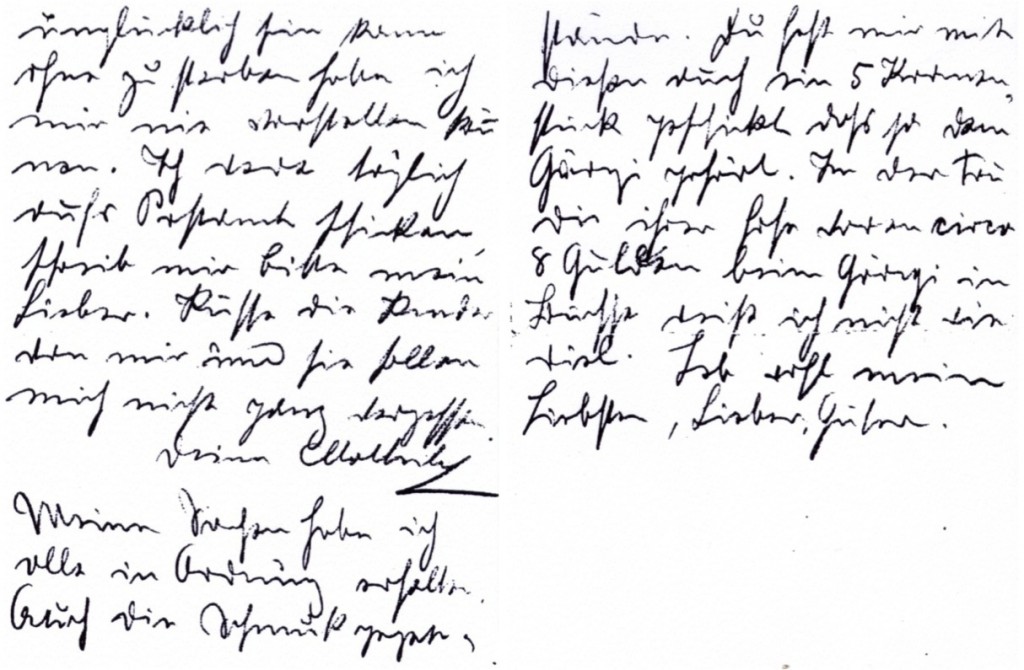 unglücklich sein kann
ohne zu sterben habe ich
mir nie vorstellen kön
nen. Ich werd täglich
aufs Postamt schicken,
schreib mir bitte mein
Lieber. Küsse die Kinder
von mir und sie sollen
mich nicht ganz vergessen.
Deine Mathild
Meine Sachen habe ich
alle in Ordnung erhalten.
Auch die Schmuk gegen-
stände. Du hast mir mit
diesen auch ein 5 Kronen,
stück geschickt das ja dem
Györgi gehört. In der
die ihrer Hose waren circa
8 Gulden beim Györgi in
Büchse weiß ich nicht wie
viel. Leb wohl mein
Liebster, Lieber, Guter.